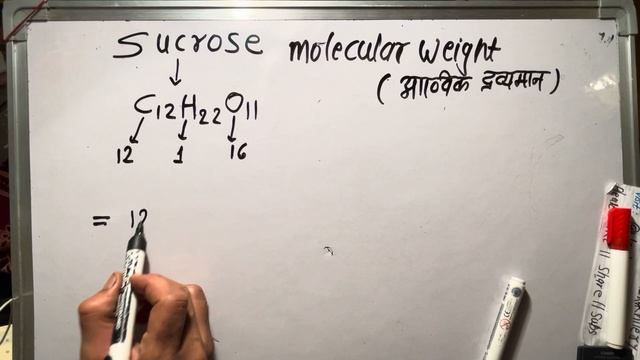 Sucrose molecular weight
(आण्विक द्रव्यमान)
C12H22O11
12 1 16
= 12
Share || Subs